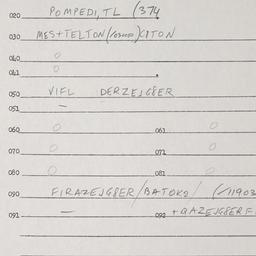 020 POMPEDI, TL (374
030 MES+TELTON ( ) CITON
040 0
041 0
050 VIFL DERZEJG8ER
051 —
060 0 061 0
070 0 071 0
080 0 081 0
090 FIRAZEJG8ER/BATOKS/ (/11903
091 — 092 +GAZEJG8ER F